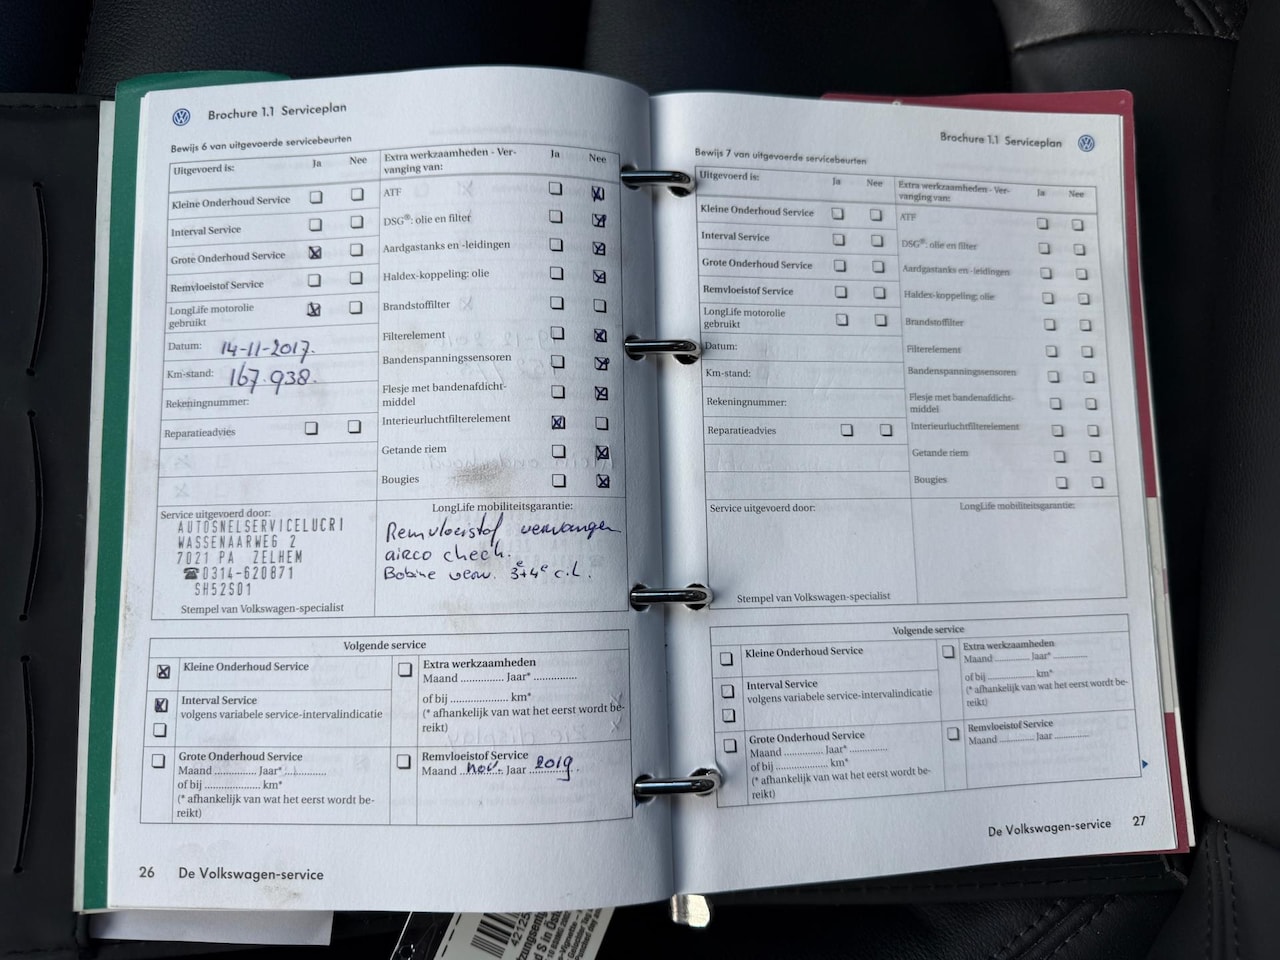 Brochure 1.1 Serviceplan
Bewijs 6 van uitgevoerde servicebeurten
Uitgevoerd is: Ja Nee
Kleine Onderhoud Service
Interval Service
Grote Onderhoud Service
Remvloeistof Service
LongLife motorolie
gebruikt
Datum: 14-11-2017.
Km-stand: 167.938.
Rekeningnummer:
Reparatieadvies
Extra werkzaamheden - Ver-
vanging van: Ja Nee
ATF
DSG®: olie en filter
Aardgastanks en -leidingen
Haldex-koppeling: olie
Brandstoffilter
Filterelement
Bandenspanningssensoren
Flesje met bandenafdicht-
middel
Interieurluchtfilterelement
Getande riem
Bougies
Service uitgevoerd door:
AUTOSNELSERVICELUCRI
WASSENAARWEG 2
7021 PA ZELHEM
☎0314-620871
SH52S01
Stempel van Volkswagen-specialist
LongLife mobiliteitsgarantie:
Remvloeistof vervangen
airco check.
Bobine verv. 3e+4e c.l.
Volgende service
Kleine Onderhoud Service
Interval Service
volgens variabele service-intervalindicatie
Grote Onderhoud Service
Maand .............. Jaar* ..............
of bij .................... km*
(* afhankelijk van wat het eerst wordt be-
reikt)
Extra werkzaamheden
Maand .............. Jaar* ..............
of bij .................... km*
(* afhankelijk van wat het eerst wordt be-
reikt)
Remvloeistof Service
Maand nov. Jaar 2019
26 De Volkswagen-service
Brochure 1.1 Serviceplan
Bewijs 7 van uitgevoerde servicebeurten
Uitgevoerd is: Ja Nee
Kleine Onderhoud Service
Interval Service
Grote Onderhoud Service
Remvloeistof Service
LongLife motorolie
gebruikt
Datum:
Km-stand:
Rekeningnummer:
Reparatieadvies
Extra werkzaamheden - Ver-
vanging van: Ja Nee
ATF
DSG®: olie en filter
Aardgastanks en -leidingen
Haldex-koppeling: olie
Brandstoffilter
Filterelement
Bandenspanningssensoren
Flesje met bandenafdicht-
middel
Interieurluchtfilterelement
Getande riem
Bougies
Service uitgevoerd door:
Stempel van Volkswagen-specialist
LongLife mobiliteitsgarantie:
Volgende service
Kleine Onderhoud Service
Interval Service
volgens variabele service-intervalindicatie
Grote Onderhoud Service
Maand .............. Jaar* ..............
of bij .................... km*
(* afhankelijk van wat het eerst wordt be-
reikt)
Extra werkzaamheden
Maand .............. Jaar* ..............
of bij .................... km*
(* afhankelijk van wat het eerst wordt be-
reikt)
Remvloeistof Service
Maand .............. Jaar ..............
De Volkswagen-service 27